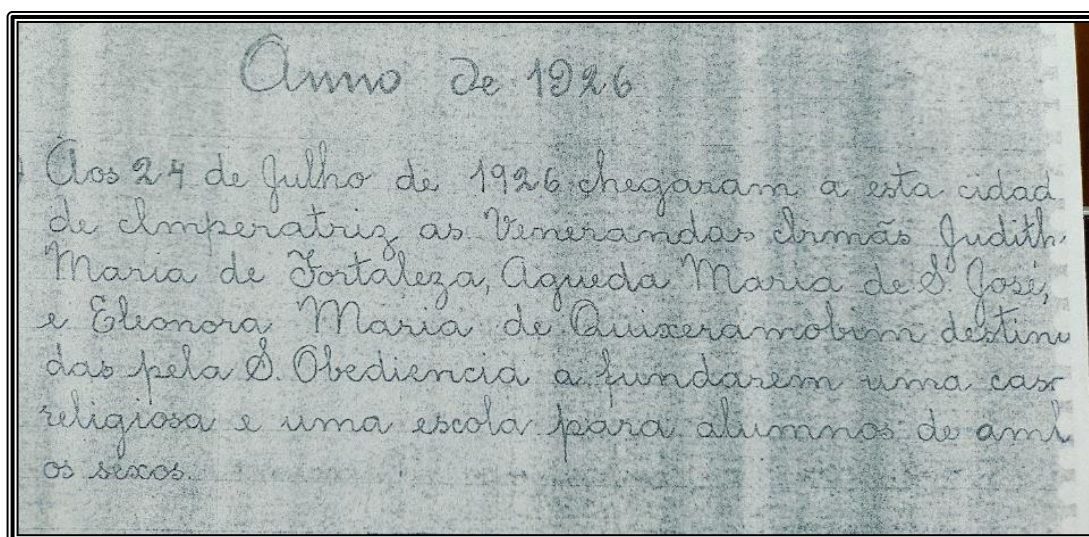 Anno de 1926
Aos 24 de Julho de 1926 chegaram a esta cidad
de Imperatriz as Venerandas Irmãs Judith
Maria de Fortaleza, Agueda Maria de S. José,
e Eleonora Maria de Quixeramobim destina
das pela S. Obediencia a fundarem uma cas
religiosa e uma escola para alumnos de amb
os sexos.